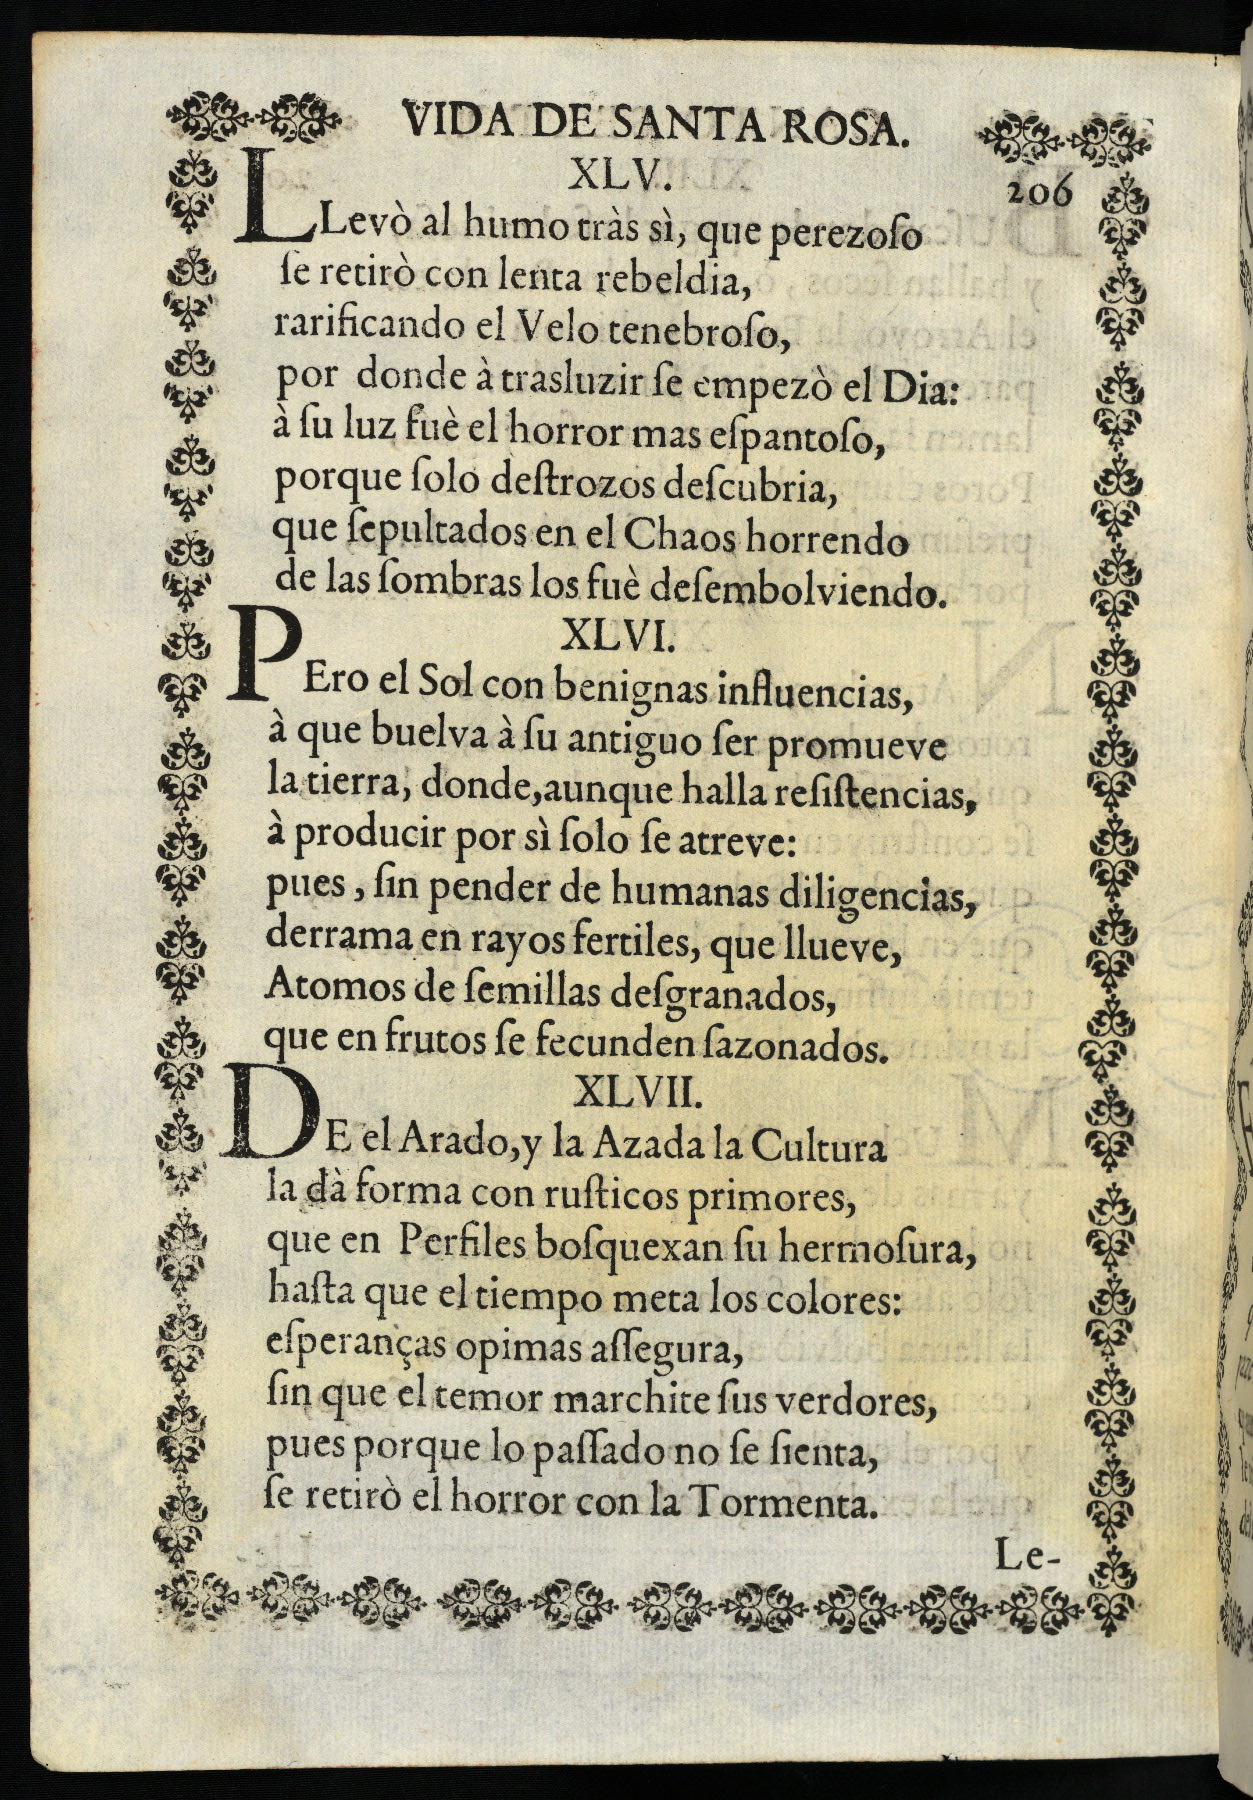 VIDA DE SANTA ROSA.
XLV.
206
LLevò al humo tràs sì, que perezoſo
ſe retirò con lenta rebeldia,
rarificando el Velo tenebroſo,
por donde à trasluzir ſe empezò el Dia:
à ſu luz fuè el horror mas eſpantoſo,
porque ſolo deſtrozos deſcubria,
que ſepultados en el Chaos horrendo
de las ſombras los fuè deſembolviendo.
XLVI.
PEro el Sol con benignas influencias,
à que buelva à ſu antiguo ſer promueve
la tierra, donde,aunque halla reſiſtencias,
à producir por sì ſolo ſe atreve:
pues, ſin pender de humanas diligencias,
derrama en rayos fertiles, que llueve,
Atomos de ſemillas deſgranados,
que en frutos ſe fecunden ſazonados.
XLVII.
DE el Arado,y la Azada la Cultura
la dà forma con ruſticos primores,
que en Perfiles boſquexan ſu hermoſura,
haſta que el tiempo meta los colores:
eſperanças opimas aſſegura,
ſin que el temor marchite ſus verdores,
pues porque lo paſſado no ſe ſienta,
ſe retirò el horror con la Tormenta.
Le-